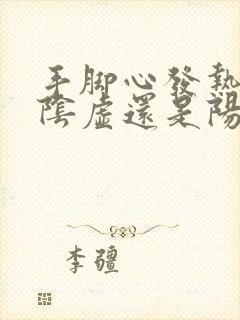 手脚心發熱
陰虛還是陽
李疆